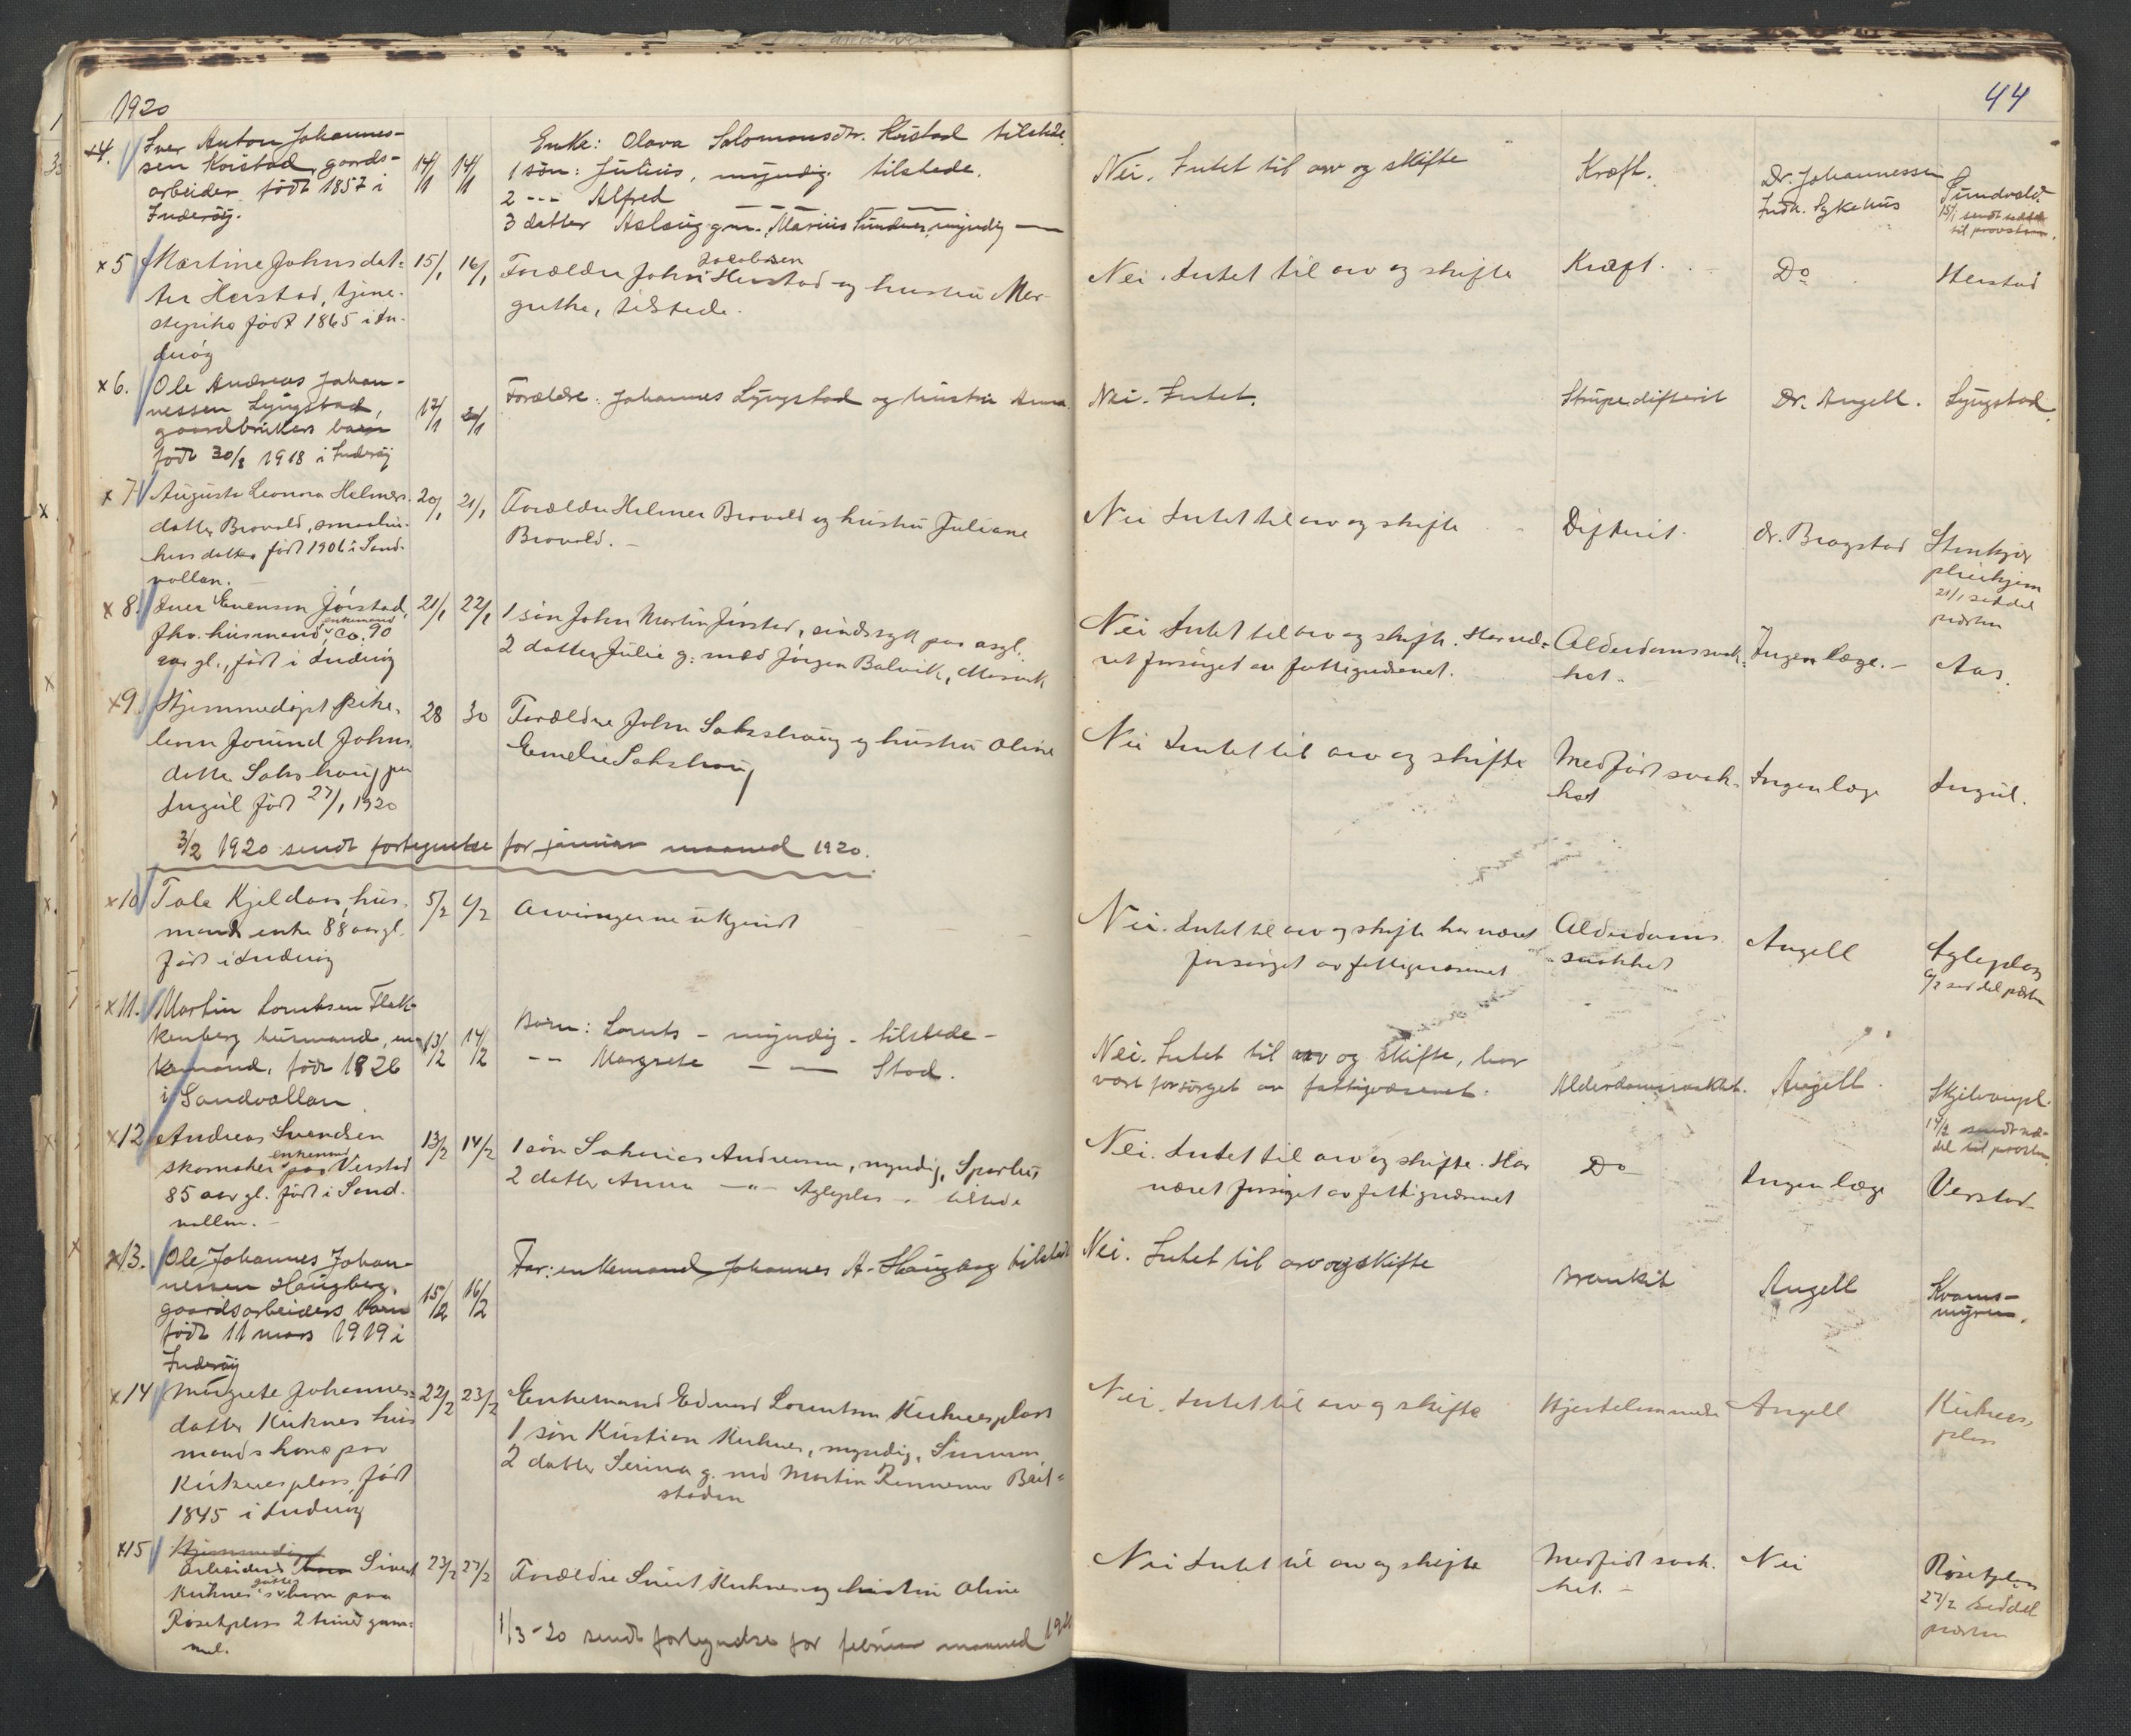 1920
44
4. Iver Anton Johannes-
sen Koristad, gaards-
arbeider født 1857 i
Inderøy.
14/1 14/1
Enke: Olava Salomonsdtr. Koristad tilstede.
1 søn: Julius, myndig tilstede.
2 -- Alfred — —
3 datter Aslaug gm. Marius Sundnes, myndig —
Nei. Intet til arv og skifte
Kræft.
Dr. Johannessen
Indh. Sykehus
Sundvold.
15/1 sendt seddel
til provsten.
x 5 Martine Johnsdat-
ter Heistad, tjene-
stepike født 1865 i In-
derøy
15/1 16/1
Forældre John Jacobsen Heistad og hustru Mar-
grethe, tilstede.
Nei. Intet til arv og skifte
Kræft.
Do
Heistad
x 6. Ole Andreas Johan-
nessen Lyngstad,
gaardbrukers barn
født 30/8 1918 i Inderøy
17/1 20/1
Forældre: Johannes Lyngstad og hustru Anna.
Nei. Intet.
Strupedifterit
Dr. Angell.
Lyngstad.
x 7 Augusta Leonora Helmers-
datter Brovold, smaabru-
kers datter født 1906 i Sand-
vollan.
20/1 21/1
Forældre Helmer Brovold og hustru Juliane
Brovold. -
Nei Intet til arv og skifte
Difterit.
dr. Bragstad
Stenkjær
pleiehjem
21/1 seddel
presten
x 8. Iver Evensen Jørstad,
fhv. husmand, enkemand co. 90
aar gl., født i Inderøy
21/1 22/1
1 søn John Martin Jørstad, sindssyk paa asyl.
2 datter Julie g. med Jørgen Balvik, Mosvik
Nei Intet til arv og skifte. Har væ-
ret forsørget av fattigvæsenet.
Alderdomssvak-
het.
Ingen læge. -
Aas.
x 9. Hjemmedøpt pike-
barn Jorund Johns-
datter Sakshaug paa
Ingul født 27/1 1920
28 30
Forældre John Sakshaug og hustru Oline
Emelie Sakshaug
Nei Intet til arv og skifte
Medfødt svak-
het
Ingen læge
Ingul.
3/2 1920 sendt fortegnelse for januar maaned 1920.
x 10 Tale Kjeldaas, hus-
mands enke 88 aar gl.
født i Inderøy
5/2 6/2
Arvingerne ukjendt
Nei. Intet til arv og skifte har været
forsørget av fattigvæsenet
Alderdoms-
svakhet
Angell
Agleplas
6/2 seddel presten
x 11. Martin Lorntsen Flak-
kenberg husmand, en-
kemand, født 1826
i Sandvollan
13/2 14/2
Børn: Lornts - myndig - tilstede -
-- Margrete — — Stod.
Nei. Intet til arv og skifte, har
vært forsørget av fattigvæsenet.
Alderdomssvakhet.
Angell.
Skjelvanpl.
14/2 sendt sed-
del til presten.
x 12 Andreas Svendsen
skomaker enkemand paa Verstad
85 aar gl. født i Sand-
vollan. -
13/2 14/2
1 søn Sakarias Andreassen, myndig, Sparbu
2 datter Anna -"- Agleplas - tilstede
Nei. Intet til arv og skifte. Har
været forsørget av fattigvæsenet
Do
Ingen læge
Verstad
x 13. Ole Johannes Johan-
nessen Haugberg,
gaardsarbeiders barn
født 11 mars 1919 i
Inderøy
15/2 16/2
Far: enkemand Johannes A. Haugberg tilstede
Nei. Intet til arv og skifte
Bronkit
Angell
Kvams-
myren.
x 14 Margrete Johannes-
datter Kirknes hus-
mandskone paa
Kirknesplass, født
1845 i Inderøy
22/2 23/2
Enkemand Edvard Lorntsen Kirknesplass
1 søn Kristian Kirknes, myndig,
2 datter Serina g. med Martin Rennemo Beit-
staden
Nei. Intet til arv og skifte
Hjertelammelse
Angell
Kirknes-
plass
x 15 Hjemmedøpt
Arbeider barn Sivert
Kirknes's gutte barn paa
Røsetplass 2 timer gam-
mel.
23/2 27/2
Forældre Sivert Kirknes og hustru Oline
Nei Intet til arv og skifte
Medfødt svak-
het. -
Nei
Røsetplass
27/2 seddel
presten
1/3 - 20 sendt fortegnelse for februar maaned 1920